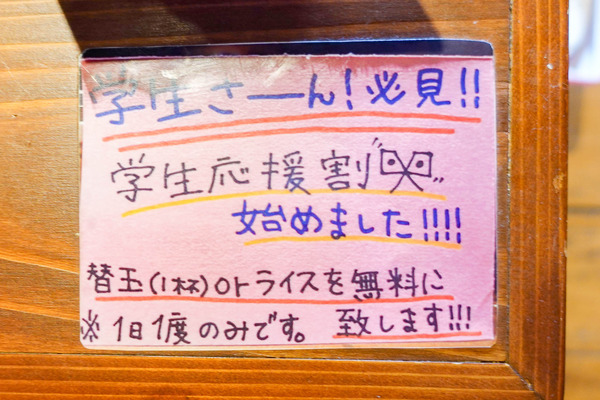 学生さーん!必見!!
学生応援割
始めました!!!!
替玉(1杯)orライスを無料に
致します!!!
※1日1度のみです。